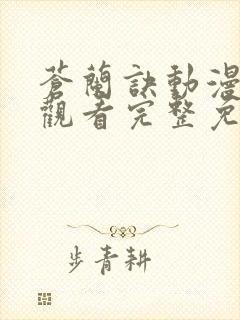 蒼蘭訣動漫
觀看完整免
步青耕